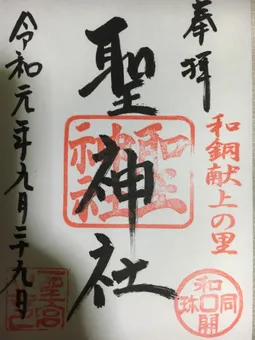 奉拝
和銅献上の里
聖神社
聖神社
令和元年九月二十九日
和同開珎